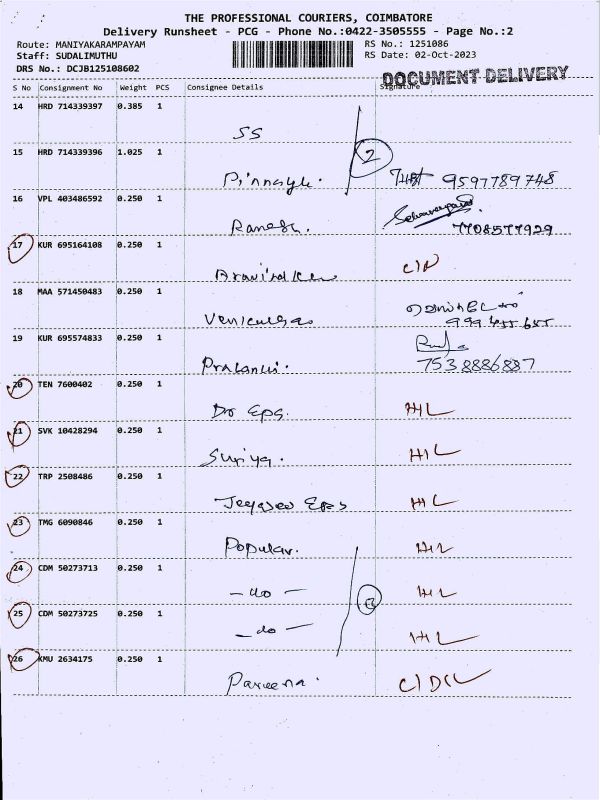 THE PROFESSIONAL COURIERS, COIMBATORE
Delivery Runsheet - PCG - Phone No.:0422-3505555 - Page No.:2
Route: MANIYAKARAMPAYAM RS No.: 1251086
Staff: SUDALIMUTHU RS Date: 02-Oct-2023
DRS No.: DCJB125108602
DOCUMENT DELIVERY
S No Consignment No Weight PCS Consignee Details Signature
14 HRD 714339397 0.385 1
SS
15 HRD 714339396 1.025 1 2
9597789748
16 VPL 403486592 0.250 1
Ramesh. 7708577929
17 KUR 695164108 0.250 1
18 MAA 571450483 0.250 1
19 KUR 695574833 0.250 1
7538886887
20 TEN 7600402 0.250 1
Dr Eps. H/L
21 SVK 10428294 0.250 1
Suriya. H/L
22 TRP 2508486 0.250 1
H/L
23 TMG 6090846 0.250 1
Popular. H/L
24 CDM 50273713 0.250 1
- do - H/L
25 CDM 50273725 0.250 1
- do - H/L
26 KMU 2634175 0.250 1
Parveena.